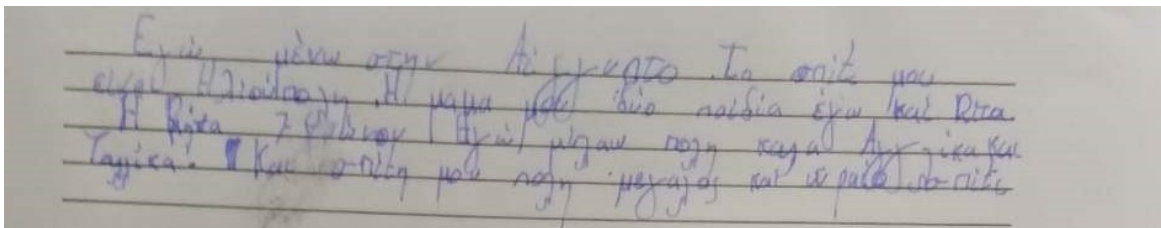 Εγώ μένω στην Αίγυπτο. Το σπίτι μου
είναι Ηλιούπολη. Η μαμα μου δύο παιδία έγω και Ρίτα.
Η Εγώ μίλαω πολη καλα Αγγλικα και
Γαλλικα. Και σπίτη μου πολη μεγαλος και ωραίο σπίτι